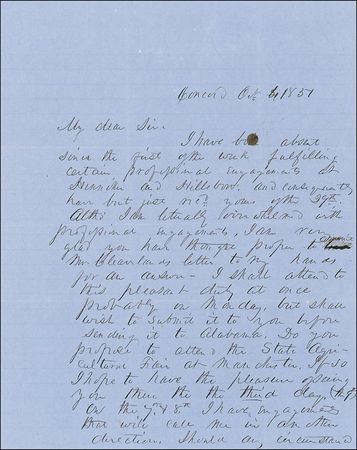 Concord Oct 4 1851
My dear Sir.
I have about
since the first of the week fulfilling
certain professional engagements at
Henniker and Hillsboro, and consequently
have but just rec'd yours of the
Altho I am literally overwhelmed with
professional engagements, I am very
glad you have thought proper to
Mr Cleavelands letter to my hands
for an answer - I shall attend to
this pleasant duty at once
probably on Monday, but shall
wish to submit it to you before
sending it to Alabama. Do you
propose to attend the State Agri-
cultural Fair at Manchester. If so
I hope to have the pleasure of seeing
you there the the third day
On the 7th & 8th I have engagements
that will call me in another
direction. Should any circumstance